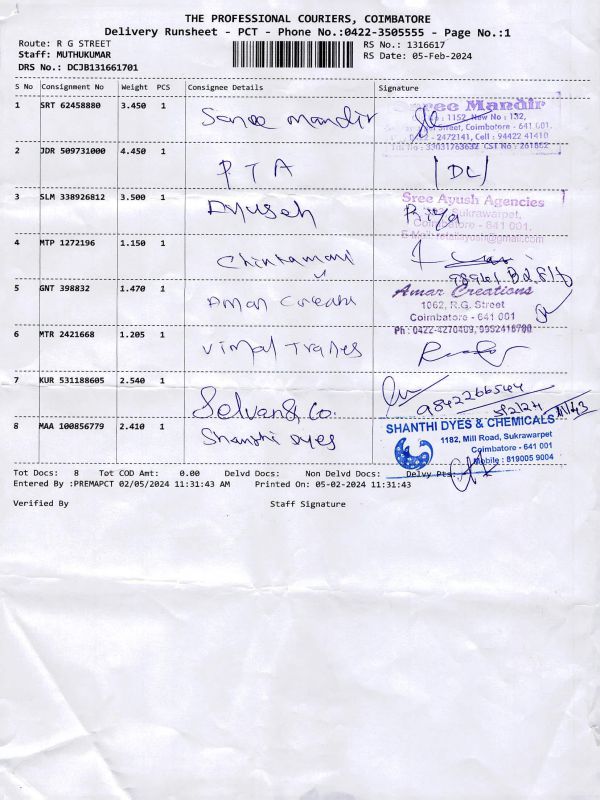 THE PROFESSIONAL COURIERS, COIMBATORE
Delivery Runsheet - PCT - Phone No.:0422-3505555 - Page No.:1
Route: R G STREET
RS No.: 1316617
Staff: MUTHUKUMAR
RS Date: 05-Feb-2024
DRS No.: DCJB131661701
S No Consignment No Weight PCS Consignee Details Signature
1 SRT 62458880 3.450 1 Sree mandir
Sree Mandir
1152, New No : 132,
Street, Coimbatore - 641 001.
2472141, Cell : 94422 41410
33031763632 CST No : 261862
2 JDR 509731000 4.450 1 PTA
3 SLM 338926812 3.500 1 Ayush Priya
Sree Ayush Agencies
Sukrawarpet,
Coimbatore - 641 001.
4 MTP 1272196 1.150 1 Chintamani
5 GNT 398832 1.470 1 Amar Creati
Amar Creations
1062, R.G. Street
Coimbatore - 641 001
Ph : 0422-4270409, 9952416700
6 MTR 2421668 1.205 1 Vimal Trades
7 KUR 531188605 2.540 1 Selvan & Co.
9842266544
8 MAA 100856779 2.410 1 Shanthi dyes
SHANTHI DYES & CHEMICALS
1182, Mill Road, Sukrawarpet
Coimbatore - 641 001
Mobile : 819005 9004
Tot Docs: 8 Tot COD Amt: 0.00 Delvd Docs: Non Delvd Docs: Delvy Pts:
Entered By :PREMAPCT 02/05/2024 11:31:43 AM Printed On: 05-02-2024 11:31:43
Verified By Staff Signature